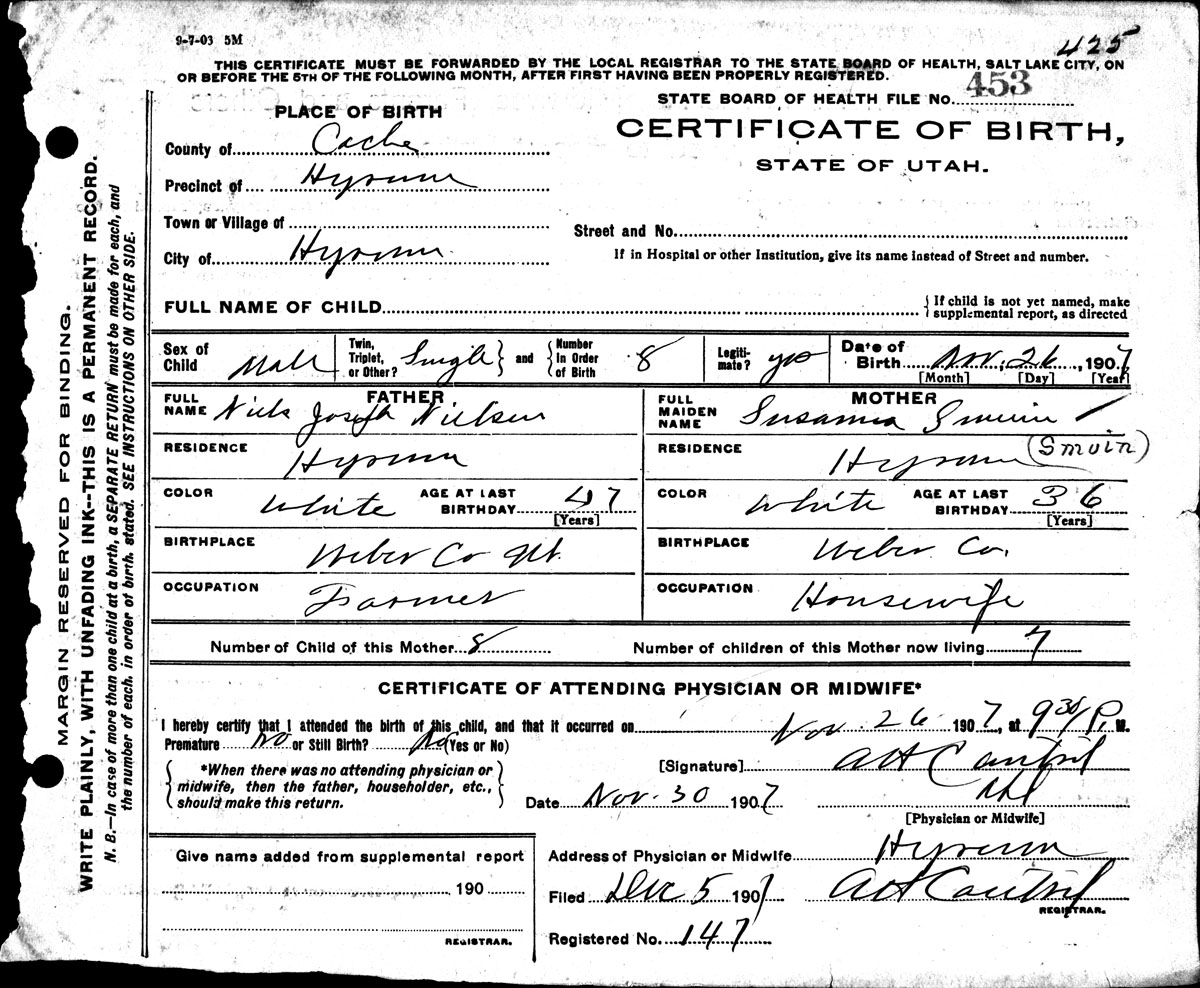 9-7-03 5M
425
THIS CERTIFICATE MUST BE FORWARDED BY THE LOCAL REGISTRAR TO THE STATE BOARD OF HEALTH, SALT LAKE CITY, ON
OR BEFORE THE 5TH OF THE FOLLOWING MONTH, AFTER FIRST HAVING BEEN PROPERLY REGISTERED.
STATE BOARD OF HEALTH FILE NO. 453
CERTIFICATE OF BIRTH,
STATE OF UTAH.
PLACE OF BIRTH
County of Cache
Precinct of Hyrum
Town or Village of
City of Hyrum
Street and No.
If in Hospital or other Institution, give its name instead of Street and number.
FULL NAME OF CHILD
{ If child is not yet named, make
supplemental report, as directed
Sex of Child Male
Twin, Triplet, or Other? Single } and { Number In Order of Birth 8
Legiti-mate? yes
Date of Birth Nov. 26, 1907
[Month] [Day] [Year]
FATHER
FULL NAME Niels Joseph Nielsen
RESIDENCE Hyrum
COLOR White AGE AT LAST BIRTHDAY 47
[Years]
BIRTHPLACE Weber Co Ut.
OCCUPATION Farmer
MOTHER
FULL MAIDEN NAME Susanna Smuin
(Smuin)
RESIDENCE Hyrum
COLOR White AGE AT LAST BIRTHDAY 36
[Years]
BIRTHPLACE Weber Co.
OCCUPATION Housewife
Number of Child of this Mother 8 Number of children of this Mother now living 7
CERTIFICATE OF ATTENDING PHYSICIAN OR MIDWIFE*
I hereby certify that I attended the birth of this child, and that it occurred on Nov. 26 1907, at 9 30/P. M.
Premature no or Still Birth? No (Yes or No)
{ *When there was no attending physician or
midwife, then the father, householder, etc.,
should make this return. }
[Signature] AH Cantril
Md
[Physician or Midwife]
Date Nov. 30 1907
Address of Physician or Midwife Hyrum
Filed Dec 5 1907 AH Cantril
REGISTRAR.
Registered No. 147
Give name added from supplemental report
190
REGISTRAR.
MARGIN RESERVED FOR BINDING.
WRITE PLAINLY, WITH UNFADING INK--THIS IS A PERMANENT RECORD.
N. B.—In case of more than one child at a birth, a SEPARATE RETURN must be made for each, and
the number of each, in order of birth, stated. SEE INSTRUCTIONS ON OTHER SIDE.